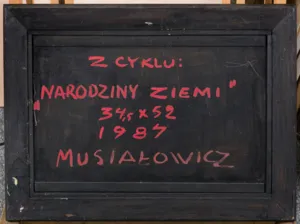 Z CYKLU:
"NARODZINY ZIEMI"
34,5 x 52
1987
MUSIAŁOWICZ